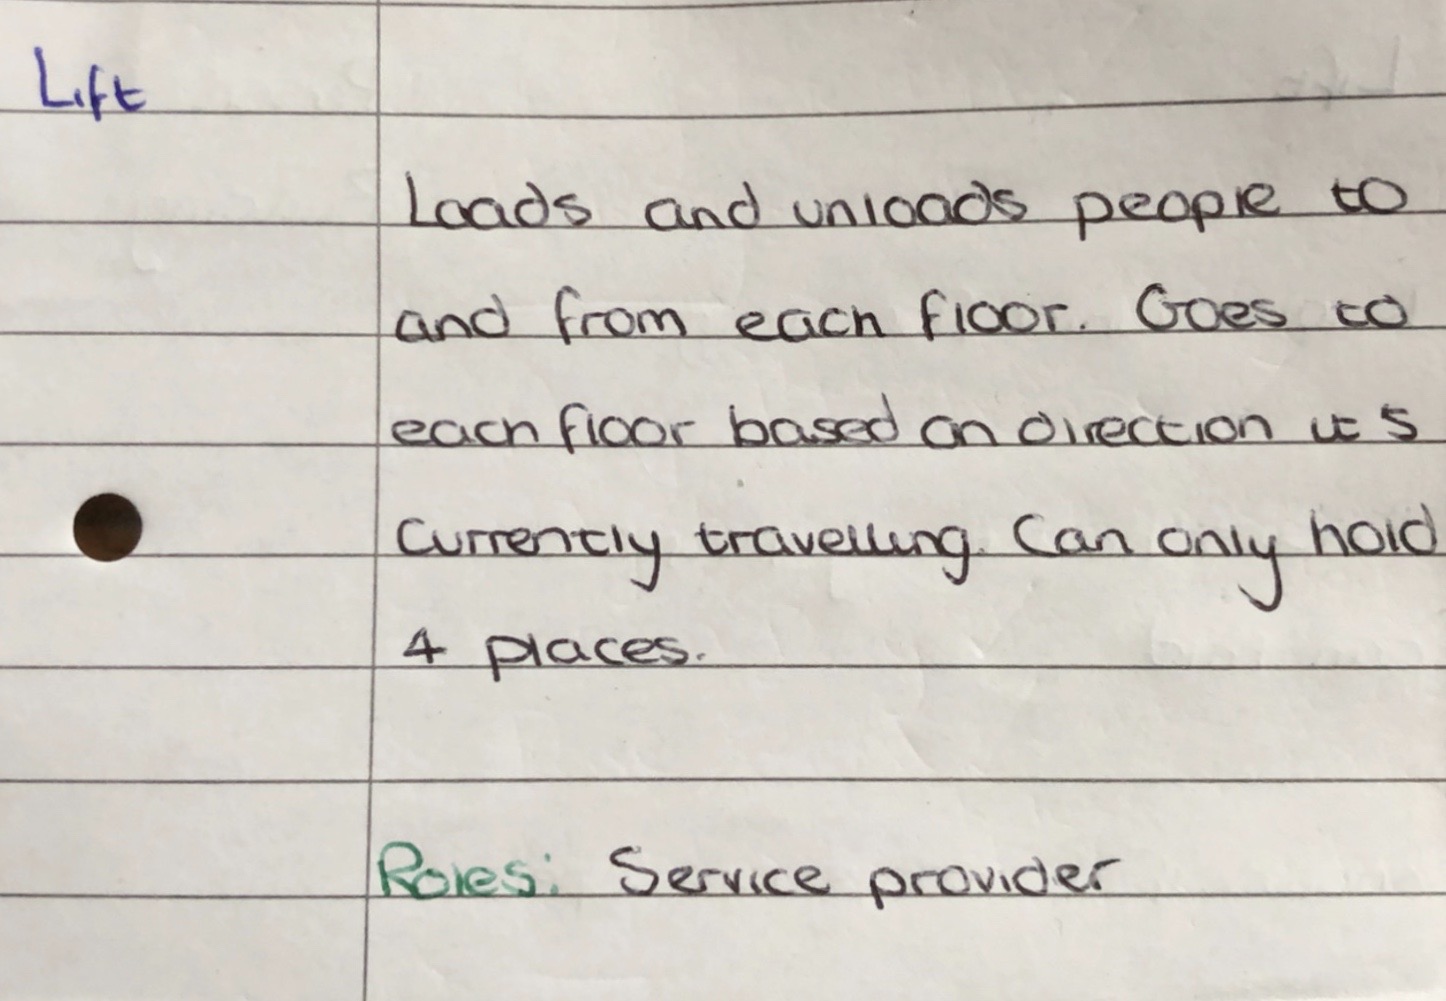 Lift
Loads and unloads people to
and from each floor. Goes to
each floor based on direction it s
Currently travelling. Can only hold
4 places.
Roles: Service provider